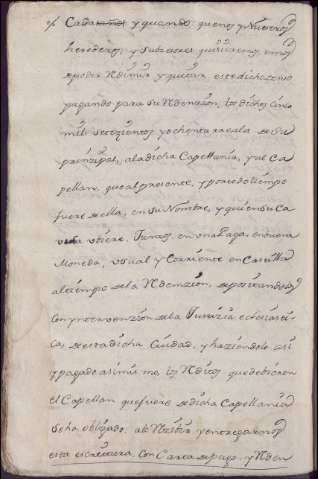 Cada y quando, que nos y Nuestros
herederos, y subcesores quisieremos, emos
a poder Redimir y quitar este dicho zenso
pagando para su Redenzion, los dichos cinco
mill setezientos y ochenta rs
prinzipal, a la dicha Capellania, y al Ca
pellan, que al presente, y por el tiempo
fuere de ella, en su Nombre, y quien su Ca
ubiere, Juntos, en una Paga, en buena
Moneda, usual y Corriente en Castilla
al tiempo de la Redenzion,
Con yntervenzion de la Justizia eclesiasti
ca, de esta dicha Ciudad, y haziendolo asi
y pagado asimismo, los Reditos que debieremos
el Capellan que fuere de dicha Capellania
se ha obligado, a lo Rezibir y entregarnos
esta escriptura, Con Carta de pago, y Reden